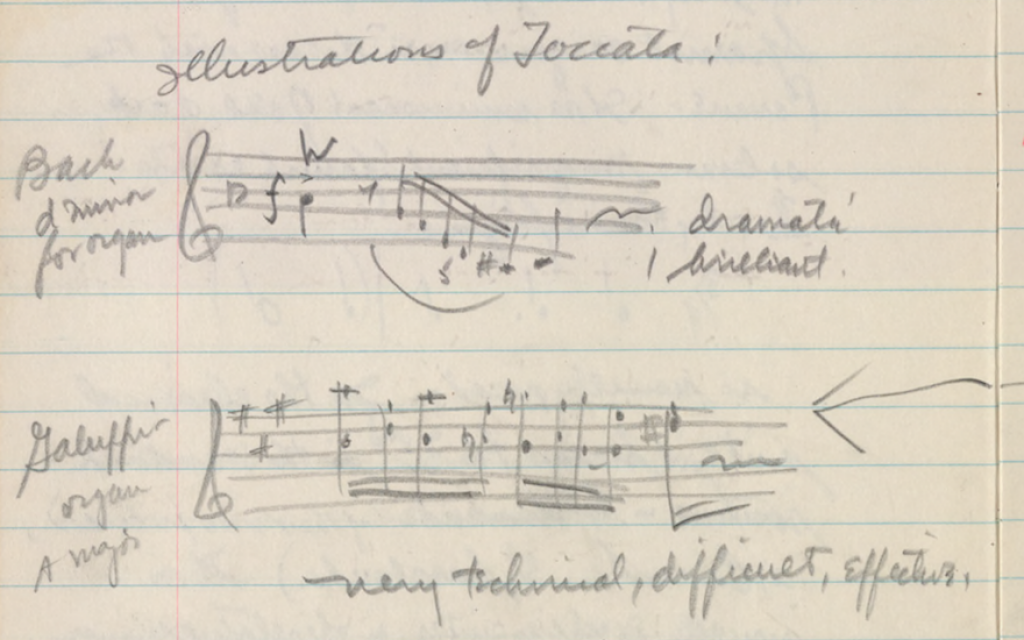 Illustrations of Toccata:
Bach
d minor
for organ
f
5
dramatic
brilliant.
Galuppi
organ
A major
very technical, difficult, effective.